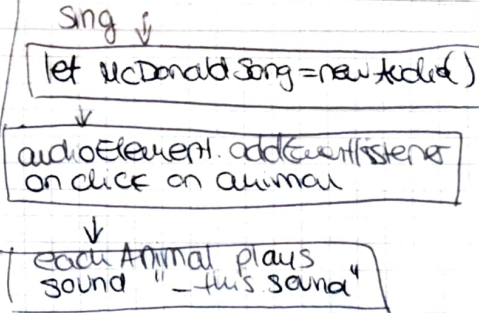 Sing
let McDonaldSong=new Audio()
audioElement.addEventlistener
on click on animal
each Animal plays
sound "_this.sound"